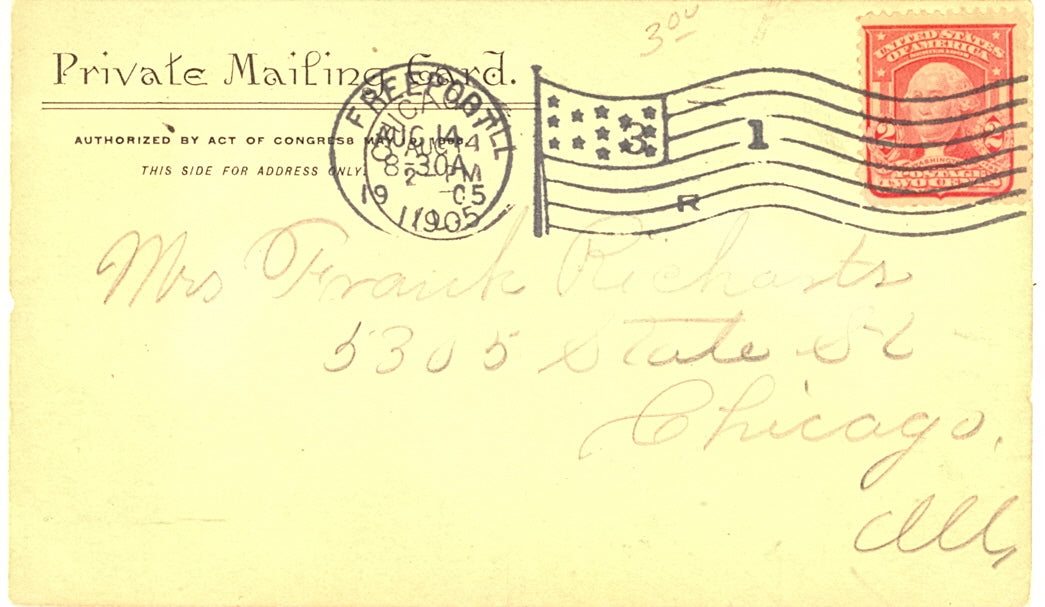 3.00
Private Mailing Card.
AUTHORIZED BY ACT OF CONGRESS MAY 19, 1898.
THIS SIDE FOR ADDRESS ONLY.
FREEPORT ILL
CHICAGO
AUG 14
AUG 14
8-30A
2 PM
19 05
1905
3
1
R
UNITED STATES
OF AMERICA
2
2
WASHINGTON
POSTAGE
TWO CENTS
Mrs Frank Richards
5305 State St
Chicago,
Ills